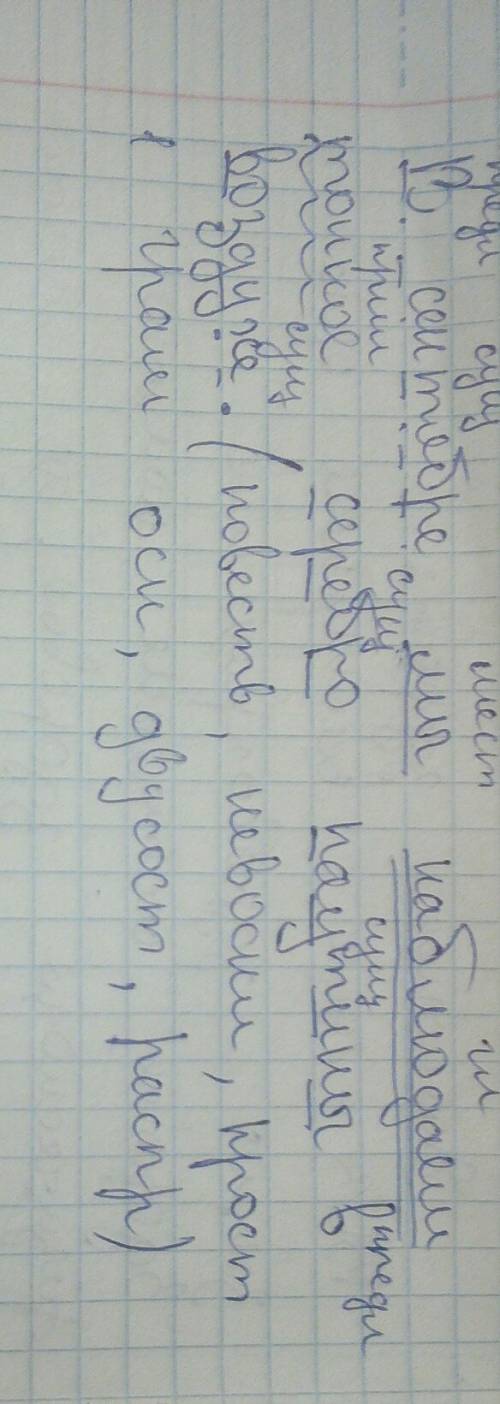 предл сущ мест гл
В сентябре мы наблюдаем
прил сущ сущ предл
тонкое серебро паутины в
сущ
воздухе. (повеств, невоскл, прост
1 грам осн, двусост, распр)